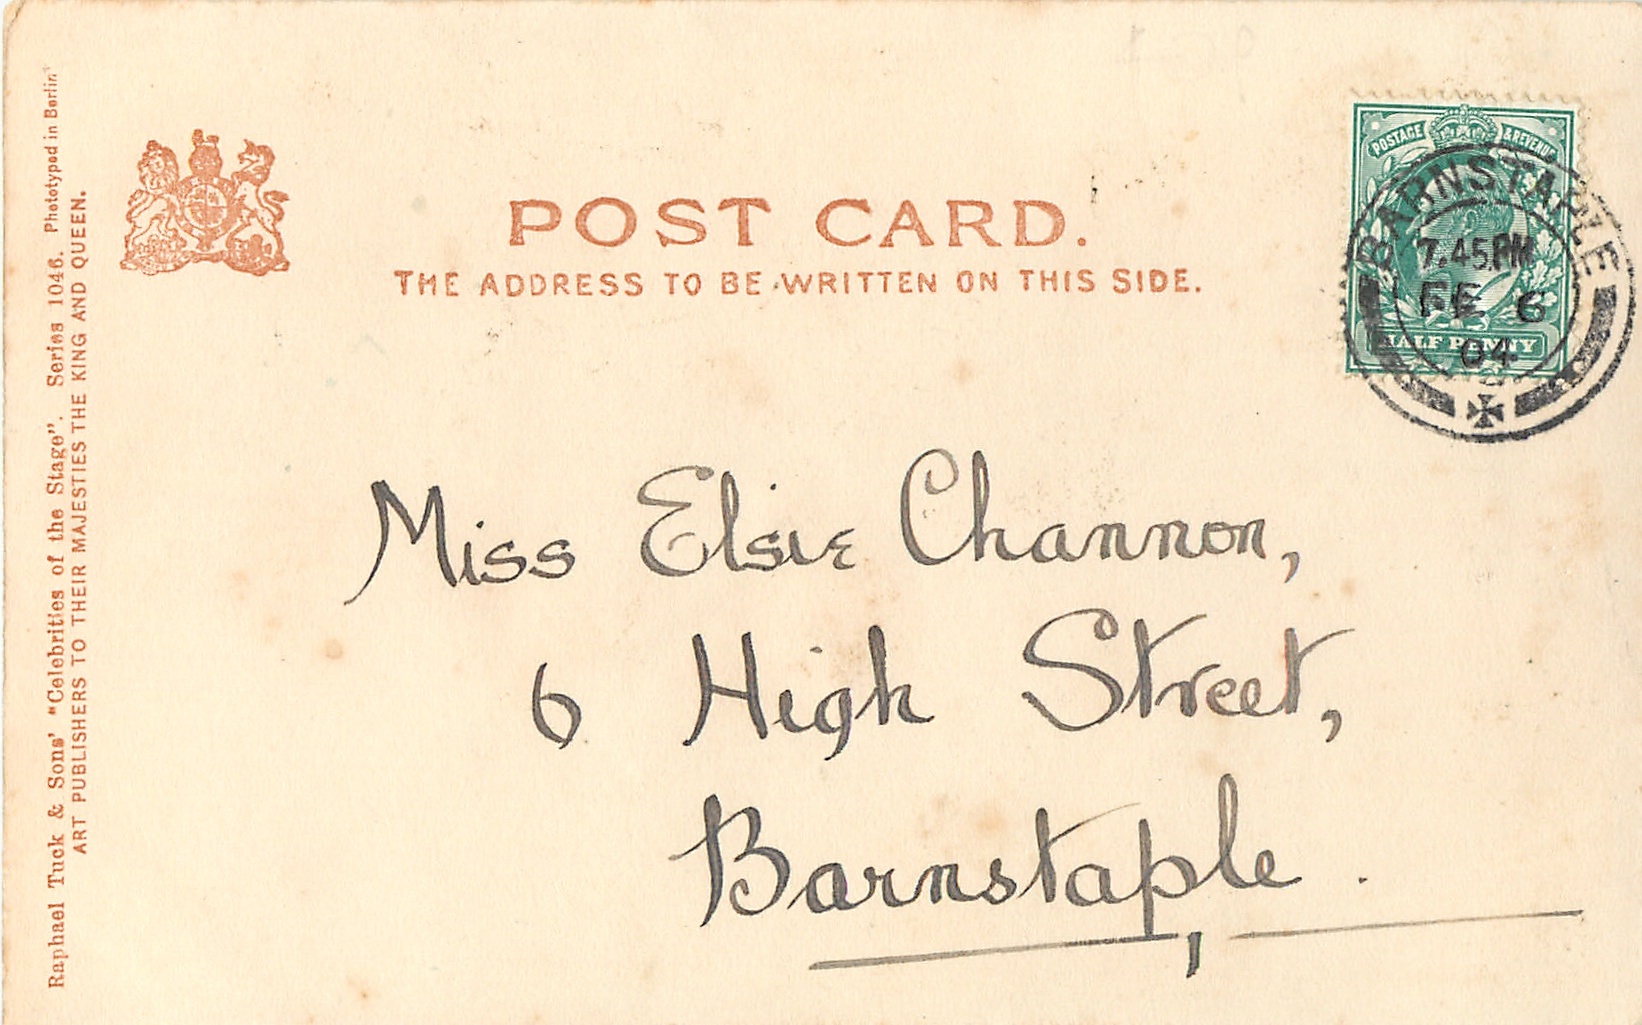 Raphael Tuck & Sons' "Celebrities of the Stage". Series 1046. Phototyped in Berlin
ART PUBLISHERS TO THEIR MAJESTIES THE KING AND QUEEN.
POST CARD.
THE ADDRESS TO BE WRITTEN ON THIS SIDE.
POSTAGE & REVENUE
HALF PENNY
BARNSTAPLE
7.45PM
FE 6
04
Miss Elsie Channon,
6 High Street,
Barnstaple.